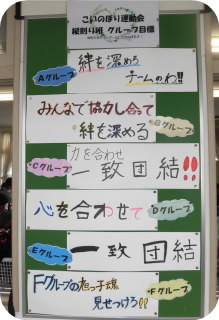 こいのぼり運動会
縦割り班 グループ目標
Aグループ
絆を深めろ
チームのわ!!
みんなで協力し合って
絆を深めろ
Bグループ
力を合わせ
Cグループ
一致団結!!
心を合わせて
Dグループ
Eグループ
一致団結
Fグループの
見せつけろ!!
Fグループ